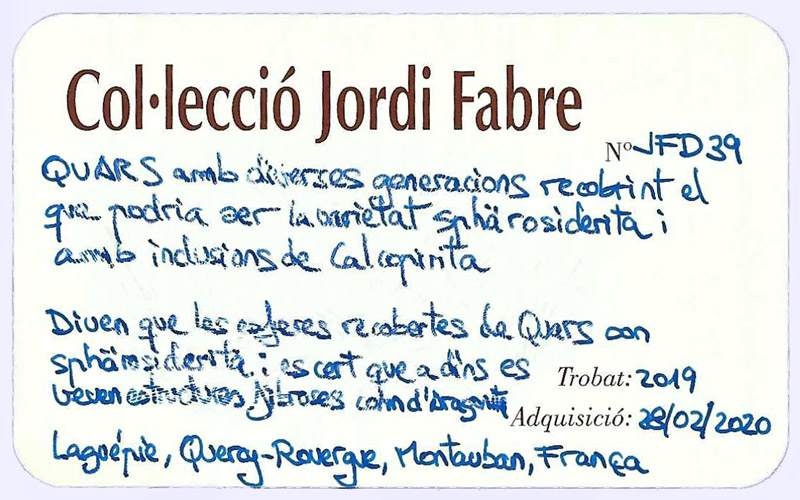 Col·lecció Jordi Fabre
Nº JFD39
QUARS amb diverses generacions recobrint el
que podria ser la varietat sphärosiderita i
amb inclusions de Calcopirita
Diuen que les esferes recobertes de Quars son
sphärosiderita i es cert que a dins es
veuen estructures fibroses com d'Aragonita
Trobat: 2019
Adquisició: 28/02/2020
Laguépie, Quercy-Rouergue, Montauban, França